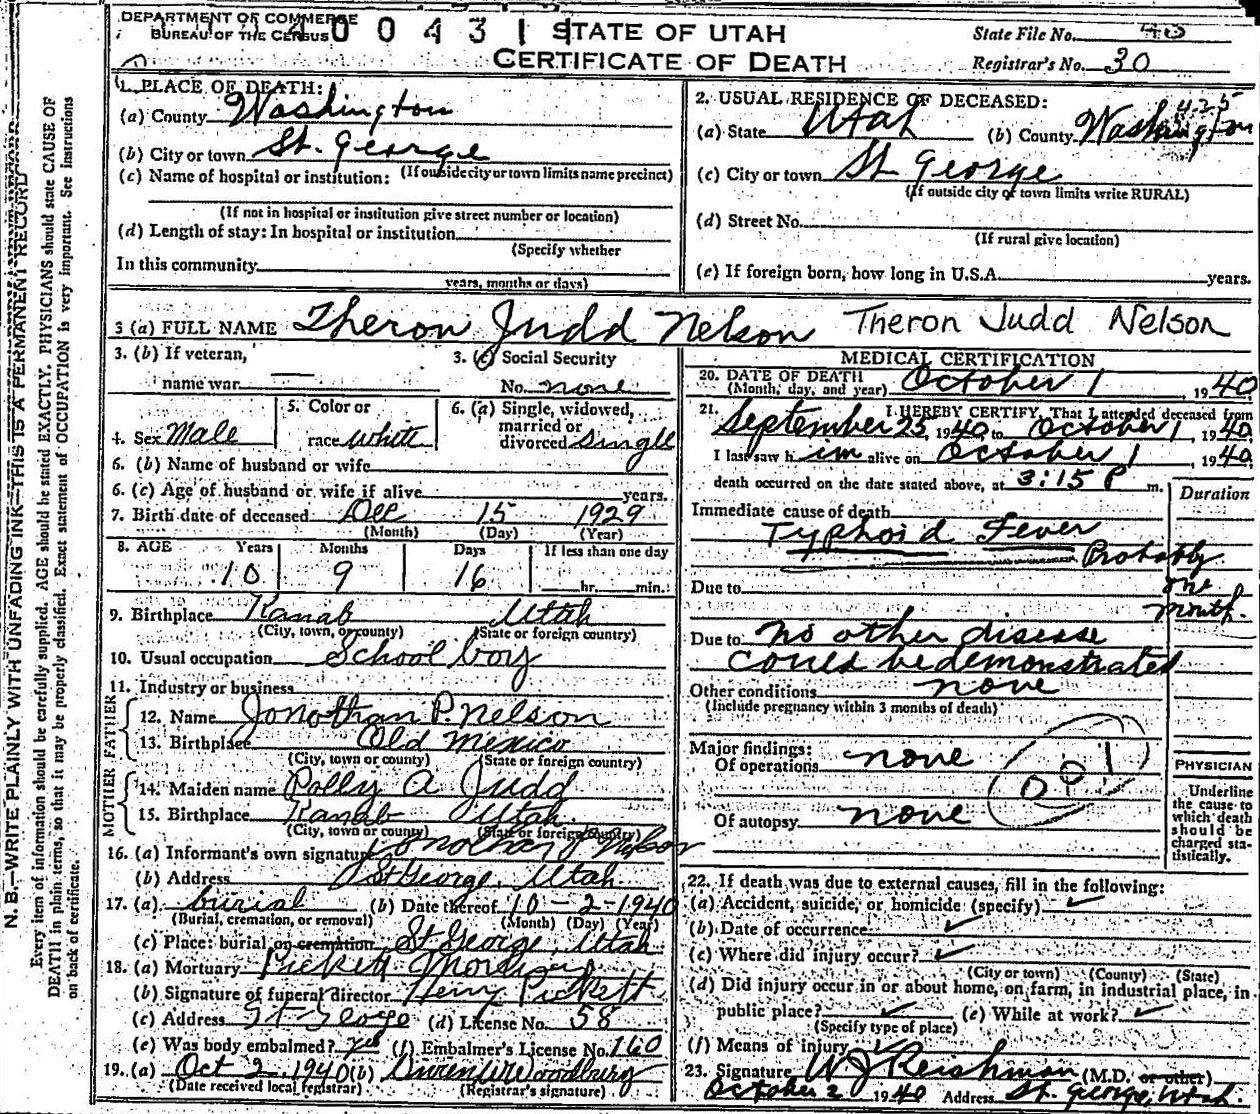 DEPARTMENT OF COMMERCE
BUREAU OF THE CENSUS
40 0431
STATE OF UTAH
CERTIFICATE OF DEATH
State File No.
Registrar's No. 30
1. PLACE OF DEATH:
(a) County Washington
(b) City or town St. George
(If outside city or town limits name precinct)
(c) Name of hospital or institution:
(If not in hospital or institution give street number or location)
(d) Length of stay: In hospital or institution
(Specify whether
In this community
years, months or days)
2. USUAL RESIDENCE OF DECEASED:
425
(a) State Utah (b) County Washington
(c) City or town St George
(If outside city or town limits write RURAL)
(d) Street No.
(If rural give location)
(e) If foreign born, how long in U.S.A. years.
3 (a) FULL NAME Theron Judd Nelson Theron Judd Nelson
3. (b) If veteran,
name war —
3. (c) Social Security
No. none
4. Sex Male
5. Color or
race white
6. (a) Single, widowed,
married or
divorced single
6. (b) Name of husband or wife
6. (c) Age of husband or wife if alive years.
7. Birth date of deceased Dec 15 1929
(Month) (Day) (Year)
8. AGE Years Months Days If less than one day
10 9 16 hr. min.
9. Birthplace Kanab Utah
(City, town, or county) (State or foreign country)
10. Usual occupation School boy
11. Industry or business
FATHER
12. Name Jonothan P. Nelson
13. Birthplace Old Mexico
(City, town or county) (State or foreign country)
MOTHER
14. Maiden name Polly A Judd
15. Birthplace Kanab Utah
(City, town or county) (State or foreign country)
16. (a) Informant's own signature Jonothan P Nelson
(b) Address St George, Utah
17. (a) burial (b) Date thereof 10-2-1940
(Burial, cremation, or removal) (Month) (Day) (Year)
(c) Place: burial or cremation St George, Utah
18. (a) Mortuary Pickett
(b) Signature of funeral director Henry Pickett
(c) Address St George (d) License No. 58
(e) Was body embalmed? yes (f) Embalmer's License No. 160
19. (a) Oct 2, 1940 (b) Woodbury
(Date received local registrar) (Registrar's signature)
MEDICAL CERTIFICATION
20. DATE OF DEATH
(Month, day, and year) October 1, 1940
21. I HEREBY CERTIFY, That I attended deceased from
September 25, 1940, to October 1, 1940
I last saw him alive on October 1, 1940
death occurred on the date stated above, at 3:15 P m.
Duration
Immediate cause of death
Typhoid Fever
Probably
one
month.
Due to
Due to no other disease
could be demonstrated
Other conditions none
(Include pregnancy within 3 months of death)
Major findings:
Of operations none
001
Of autopsy none
PHYSICIAN
Underline
the cause to
which death
should be
charged sta-
tistically.
22. If death was due to external causes, fill in the following:
(a) Accident, suicide, or homicide (specify)
(b) Date of occurrence
(c) Where did injury occur?
(City or town) (County) (State)
(d) Did injury occur in or about home, on farm, in industrial place, in
public place? (e) While at work?
(Specify type of place)
(f) Means of injury
23. Signature W J Reichman (M.D. or other)
October 2 1940 Address St. George, Utah.
N. B.—WRITE PLAINLY WITH UNFADING INK—THIS IS A PERMANENT RECORD
Every item of information should be carefully supplied. AGE should be stated EXACTLY. PHYSICIANS should state CAUSE OF
DEATH in plain terms, so that it may be properly classified. Exact statement of OCCUPATION is very important. See instructions
on back of certificate.